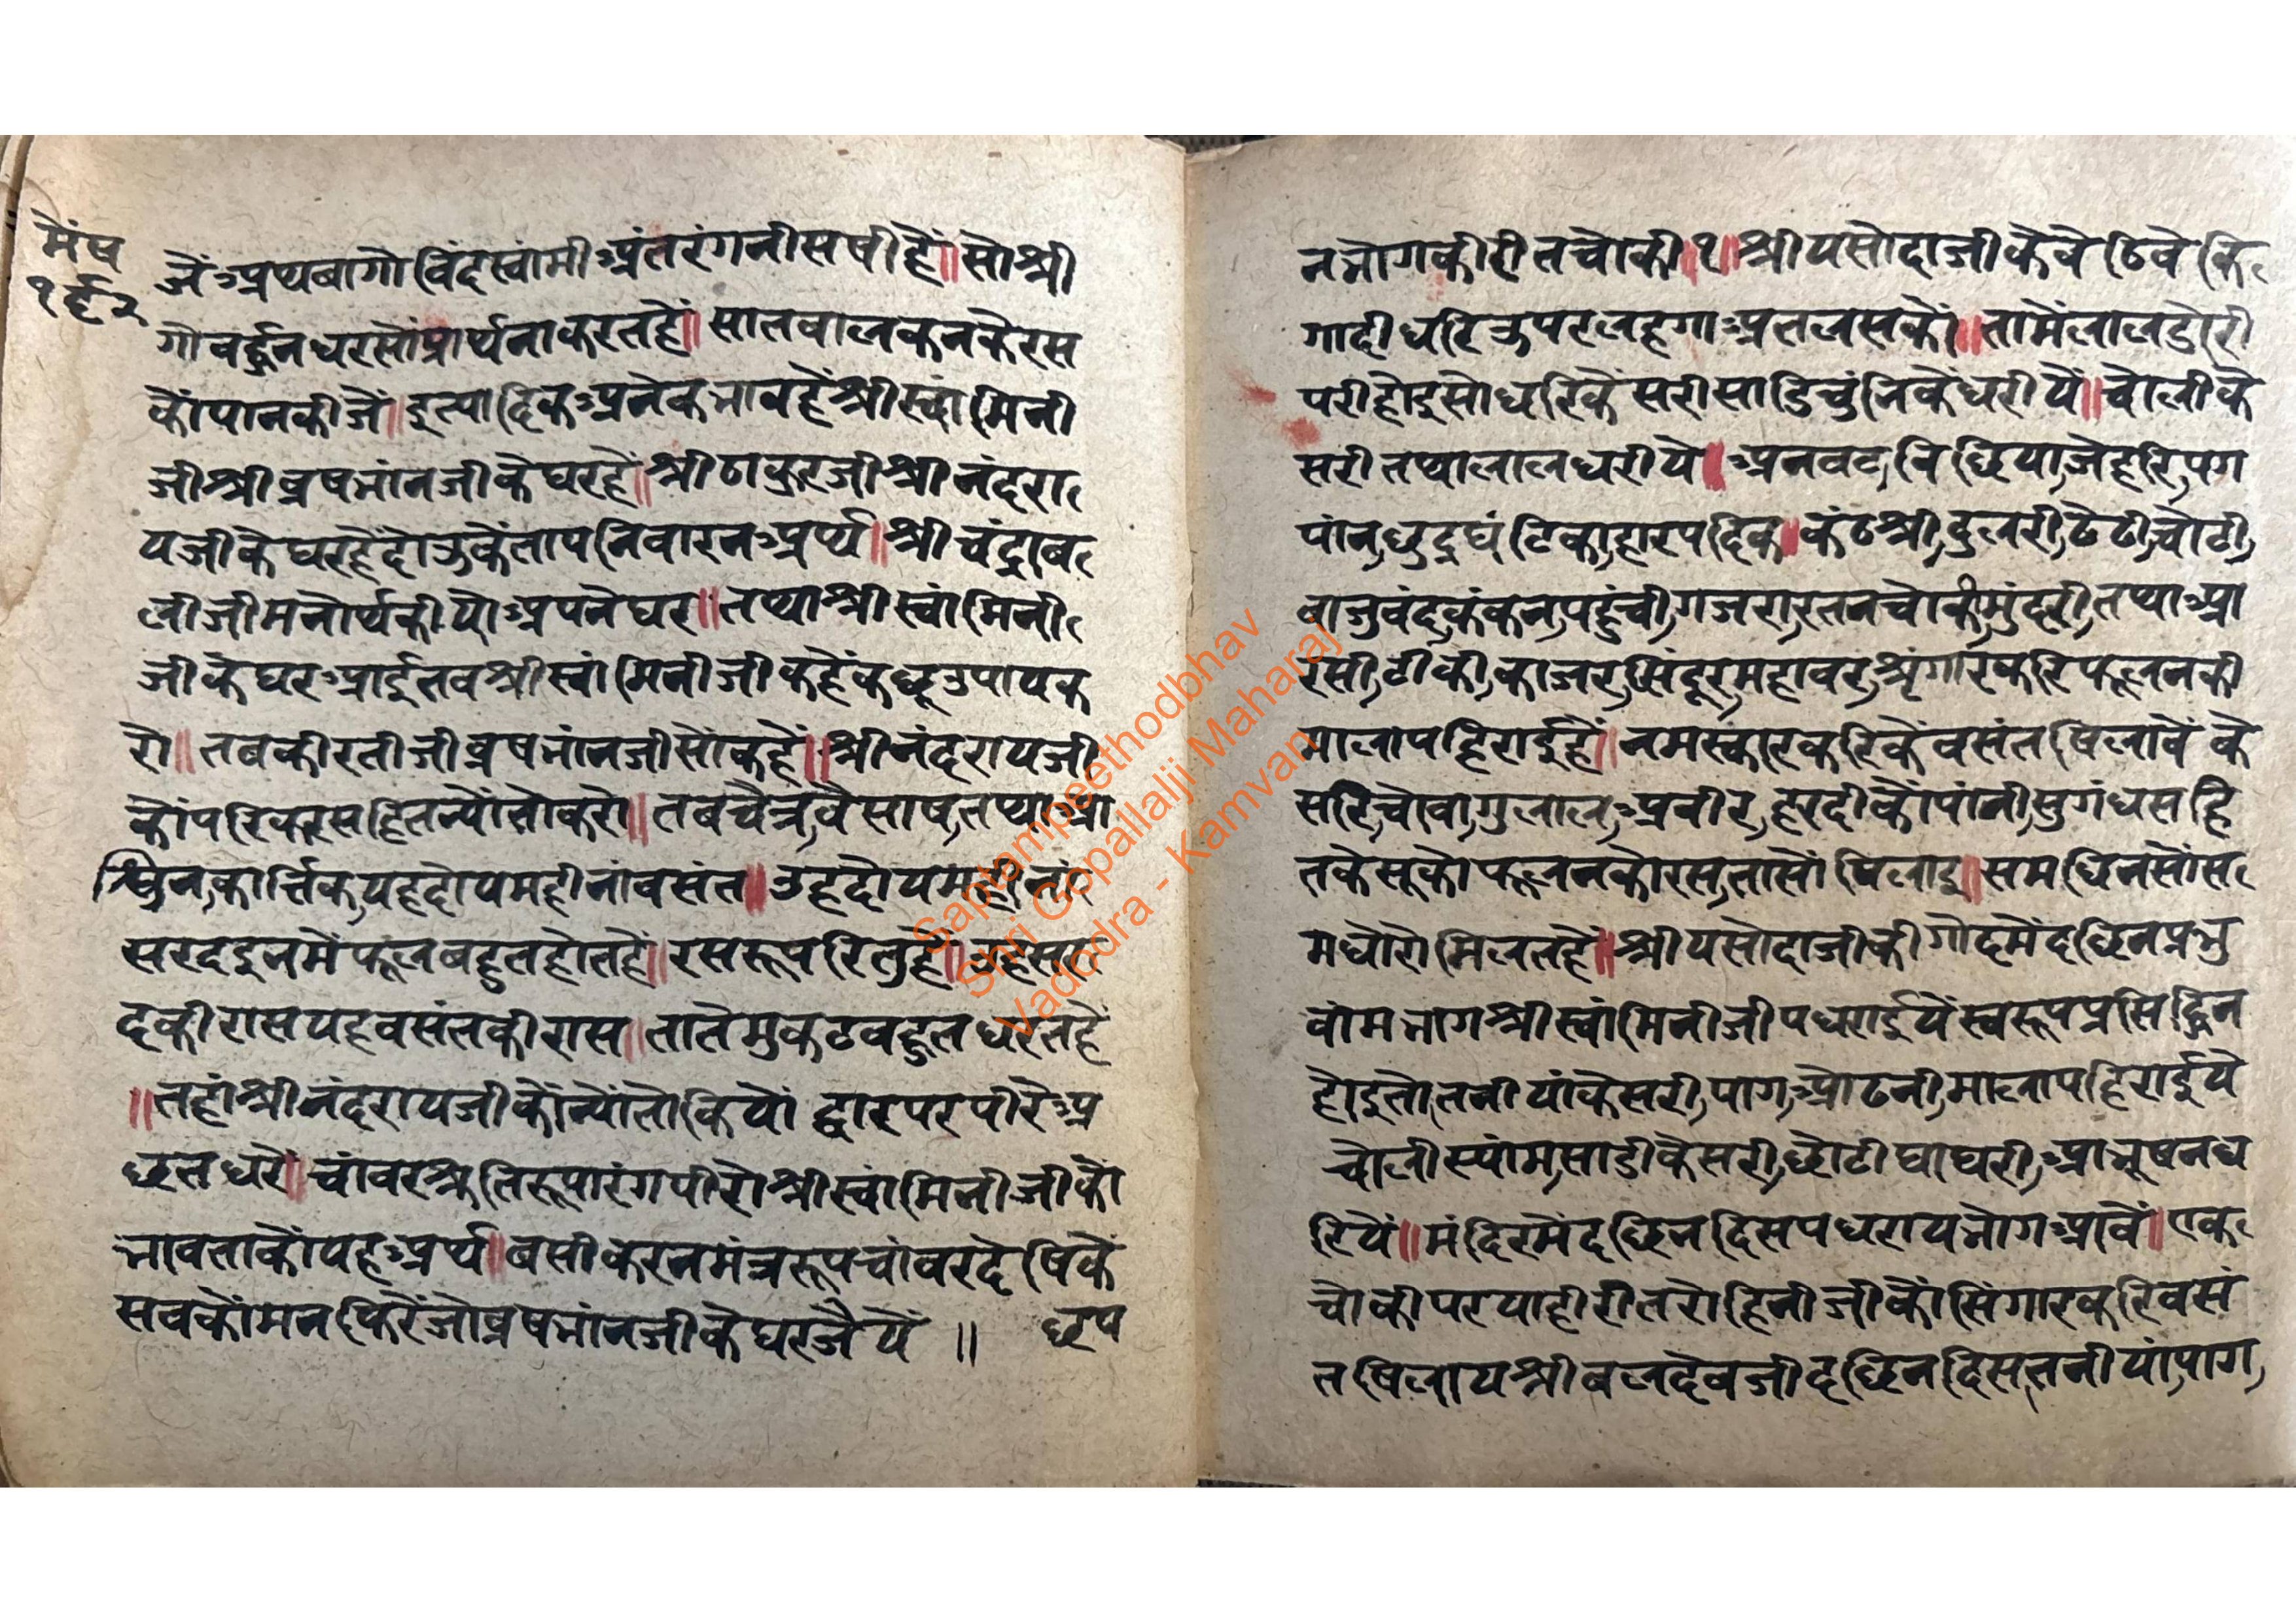 मेंष
१९२
जें॰प्रथबागोविंदस्वांमी॰अंतरंगनीसषीहैं॥सोश्री
गोवर्द्धनधरसोंप्रार्थनाकरतहें॥सालवालकनकेरस
कोंपानकीजें॥इत्यादिकअनेकभावहेंश्रीस्वांमिनी
जीश्रीब्रषभांनजीकेघरहें॥श्रीठाकुरजीश्रीनंदरा
यजीकेघरहेंदोउकेंतापनिवारनअर्थ॥श्रीचंद्राव
लीजीमनोर्थकीयोअपनेघर॥तथाश्रीस्वांमिनी
जीकेघरआईतवश्रीस्वांमिनीजीकहेंकछूउपायक
रो॥तवकीरतीजीब्रषभांनजीसोंकहें॥श्रीनंदरायजी
कोंपरिकरसहितन्योंतोकरो॥तबचैत्र,वैसाष,तथाआ
श्विन,कार्त्तिक,यहदोयमहीनांवसंत॥उहदोयमहीनां
सरदइनमेंफूलबहुतहोतहें॥रसरूपरितुहें॥उहसर
दकीरासयहवसंतकीरास॥तातेंमुकटवहुतधरतहें
॥तहांश्रीनंदरायजीकोंन्योंतोकियों द्वारपरपीरेअ
छतधरे॥चांवरश्रुतिरूपारंगपीरोश्रीस्वांमिनीजीको
भावताकोंयहअर्थ॥बसीकरनमंत्ररूपचांवरदेषिकें
सवकोंमनफिरेंजोब्रषभांनजीकेघरजैयें ॥ छप
नभोगकीरीतचोकी॥१॥श्रीयसोदाजीकेवेठिवेकि
गादीधरिउपरलहगाअतलसकों॥तामेंलालडोरी
परीहोइसोधरिकेंसरीसाडिचुंनिकेंधरीयें॥चोलीके
सरीतथालालधरीये॥अनवट,विछिया,जेहरि,पग
पांन,छुद्रघंटिका,हारपदिक॥कंठश्री,दुलरी,ढेढी,चोटी,
वाजुवंद,कंकन,पहुंची,गजरा,रतनचोकी,मुंदरी,तथाआ
रसी,टीकी,काजर,सिंदूर,महावर,श्रृंगारकरिफूलनकी
मालापहिराईहें॥नमस्कारकरिकेंवसंतषिलावेंके
सरि,चोवा,गुलाल,अवीर,हरदीकोंपांनी,सुगंधसहि
तकेसूकोफूलनकोरस,तासोंषिलाइ॥समधिनसोंस
मधोरोमिलतहें॥श्रीयसोदाजीकीगोदमेंदछिनप्रभु
वांमभागश्रीस्वांमिनीजीपधराईयेंस्वरूपप्रसिद्धिन
होइतोतनीयांकेसरी,पाग,ओढनी,मालापहिराईये
चोलीस्यांम,साडीकेसरी,छोटीघाघरी,आभूषनध
रियें॥मंदिरमेंदछिनदिसपधरायभोगआवें॥एक
चोकीपरयाहीरीतरोहिनीजीकोंसिंगारकरिवसं
तषिलायश्रीबलदेवजीदछिनदिसतनीयां,पाग,
Saptampeethodbhav
Shri Gopallalji Maharaj
Vadodra - Kamvan